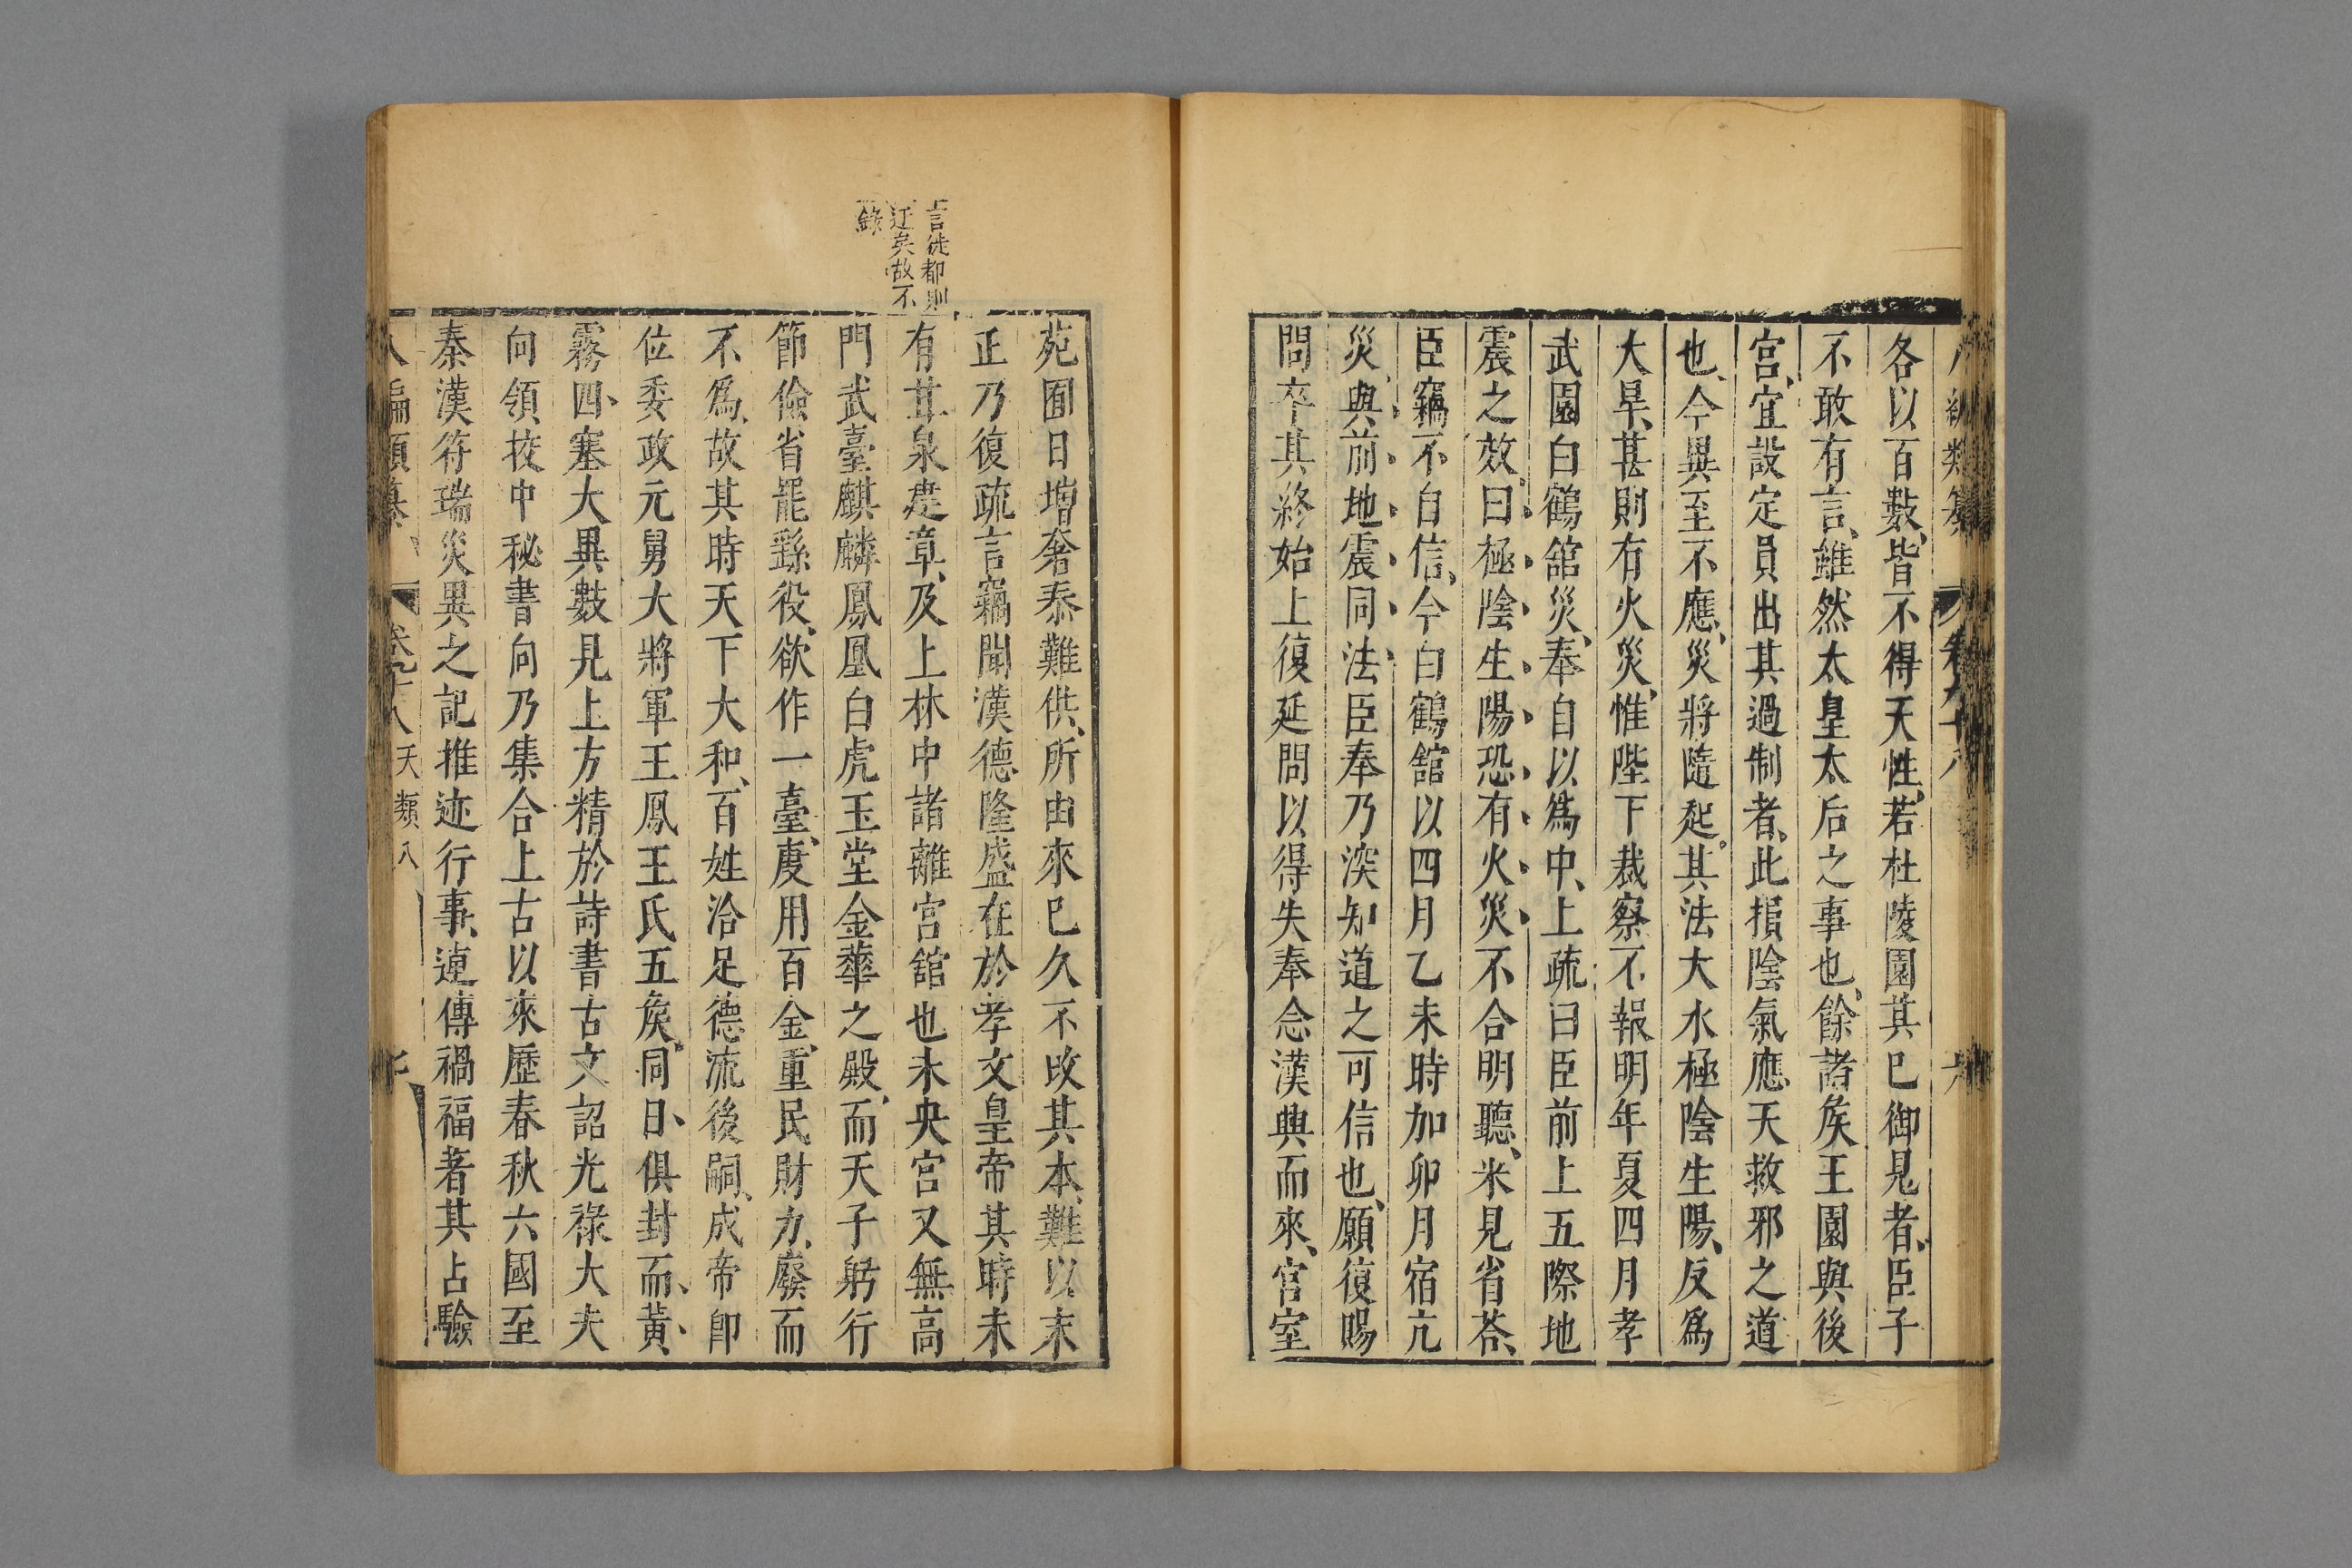 八編類纂 卷九十八
各以百數、皆不得天性、若杜陵園其已御見者、臣子
不敢有言、雖然太皇太后之事也、餘諸矦王園與後
宮、宜設定員出其過制者、此損陰氣應天救邪之道
也、今異至不應、災將隨起。其法大水極陰生陽、反爲
大旱、甚則有火災、惟陛下裁察不報明年夏四月孝
武園白鶴舘災、奉自以爲中、上疏曰臣前上五際地
震之效、曰極陰生陽恐有火災不合明聽、未見省荅、
臣竊不自信、今白鶴舘以四月乙未時加卯月宿亢
災、與前地震同法、臣奉乃深知道之可信也、願復賜
問卒其終始上復延問以得失奉念漢興而來、宮室
苑囿日增奢泰難供、所由來已久不攺其本、難以末
正乃復疏言竊聞漢德隆盛在於孝文皇帝其時未
有甘泉建章、及上林中諸離宮舘也未央宮又無高
門武臺麒麟鳳凰白虎玉堂金華之殿、而天子躬行
節儉、省罷繇役、欲作一臺、度用百金、重民財力、廢而
不爲、故其時天下大和、百姓洽足德流後嗣、成帝卽
位委政元舅大將軍王鳳王氏五矦、同日、俱封而、黃、
霧四、塞大異數見上方精於詩書古文詔光祿大夫
向領挍中秘書向乃集合上古以來歷春秋六國至
秦漢符瑞災異之記推迹行事、連傳禍福著其占驗
八編類纂 卷九十八 天類八 七
言徙都則
迂矣故不
錄